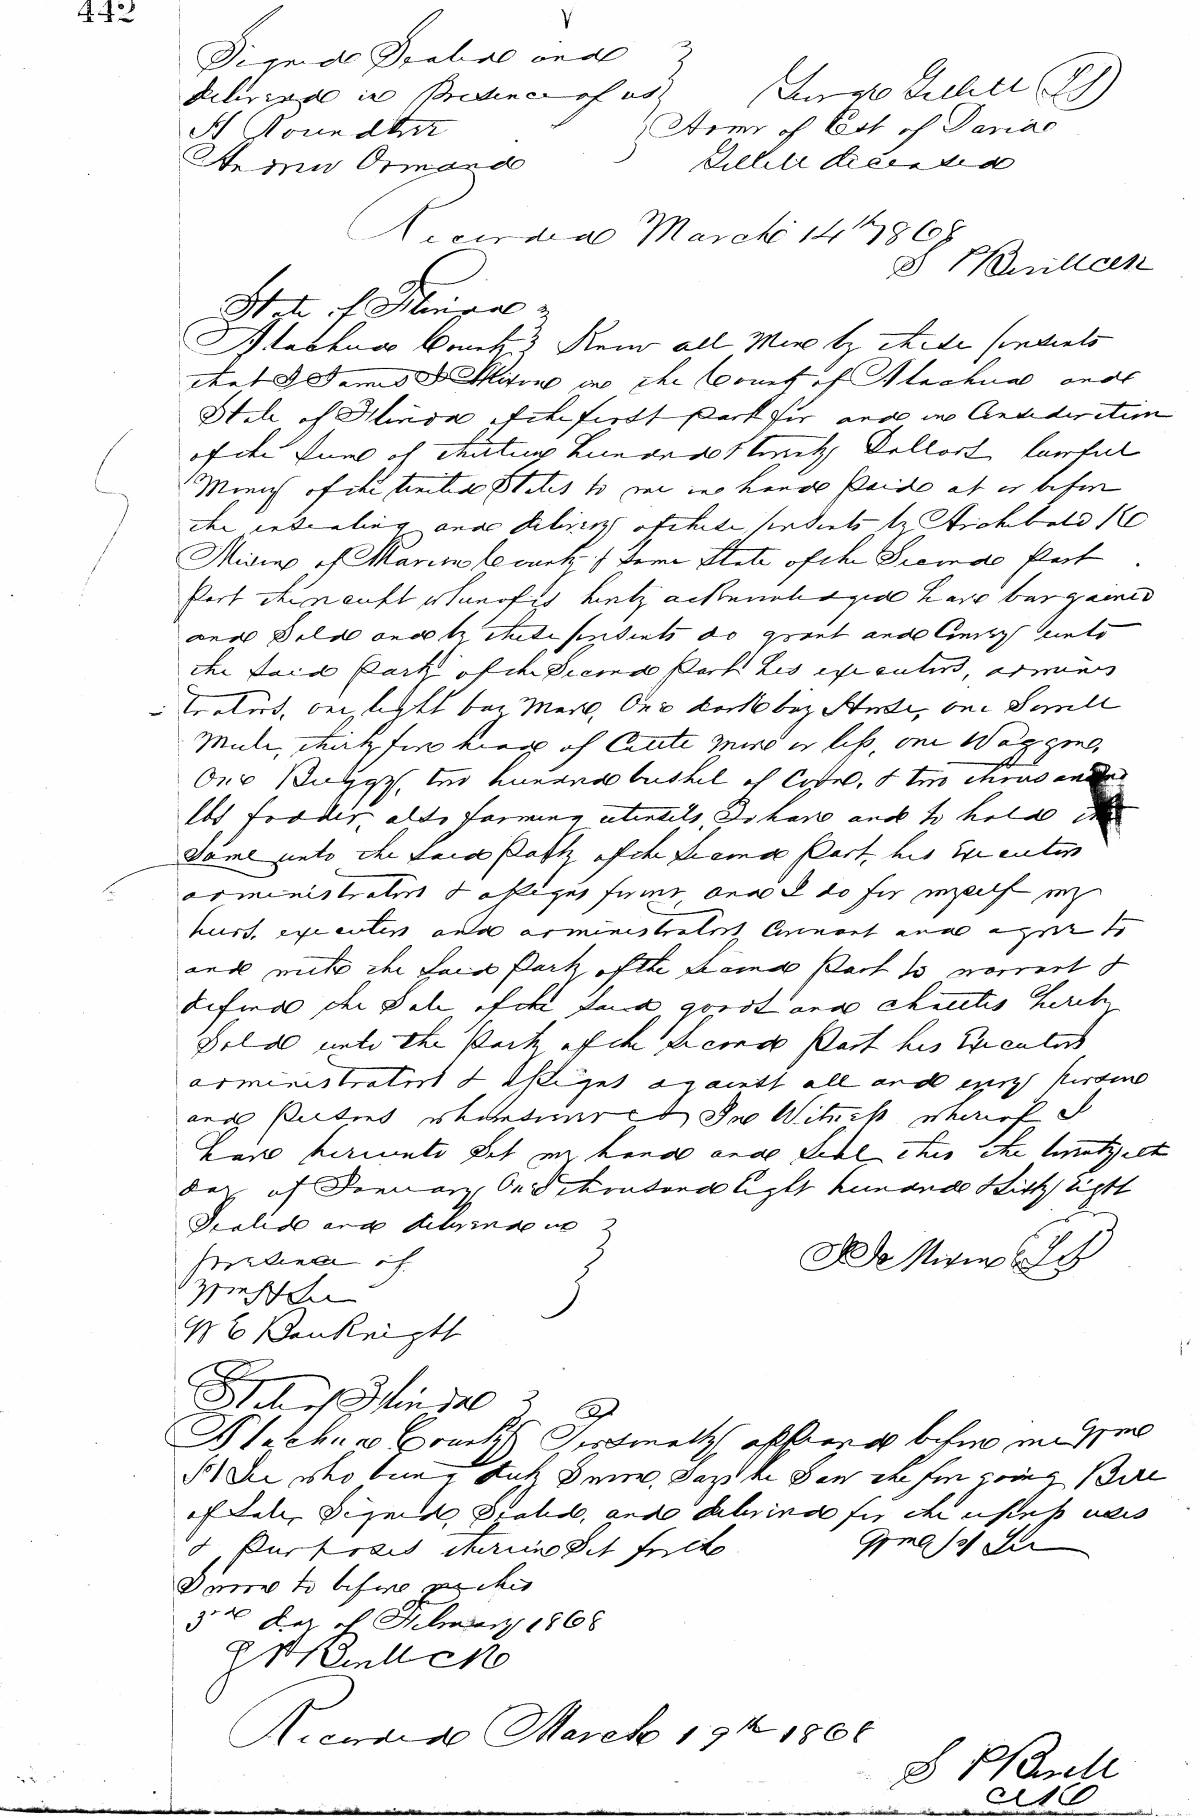 442
Signed Sealed and
delivered in Presence of us George Gillett (LS)
H Roundtree Admr of Est of Darius
Andrew Ormand Gillett deceased
Recorded March 14th 1868
S P Burill Clk
State of Florida
Alachua County Know all Men by these presents
that I James J Mixon in the County of Alachua and
State of Florida of the first part for and in Consideration
of the sum of thirteen hundred & twenty Dollars lawful
Money of the United States to me in hand Paid at or before
the ensealing and delivery of these presents by Archibald
Mixon of Marion County & same State of the Second Part
Part the receipt whereof is herby acknowledged have bargained
and Sold and by these presents do grant and Convey unto
the said Party of the Second Part his executors, adminis
trators, one light bay Mare, One dark bay Horse, one Sorrell
Mule, thirty five head of Cattle more or less, one Waggon,
One Buggy, two hundred bushel of Corn, & two thousand
lbs fodder, also farming utensils, To have and to hold the
same unto the said Party of the second Part, his Executors
administrators & assigns forever, and I do for myself my
heirs, executors and administrators Covenant and agree to
and with the said Party of the second Part to warrant &
defend the Sale of the said goods and chattles hereby
Sold unto the Party of the second Part his Executors
administrators & assigns against all and every person
and Persons whomsoever In Witness whereof I
have hereunto Set my hand and Seal this the
day of January One thousand Eight hundred & Sixty Eight
Sealed and delivered in
presence of J J Mixon (LS)
Wm H Lee
W E Bauknight
State of Florida
Alachua County Personally appeared before me Wm
H Lee who being duly Sworn, Says he Saw the fore going Bill
of Sale, Signed, Sealed, and delivered for the express uses
& Purposes therein Set forth Wm H Lee
Sworn to before me this
3rd day of February 1868
S P Burill Clk
Recorded March 19th 1868
S P Burill
Clk